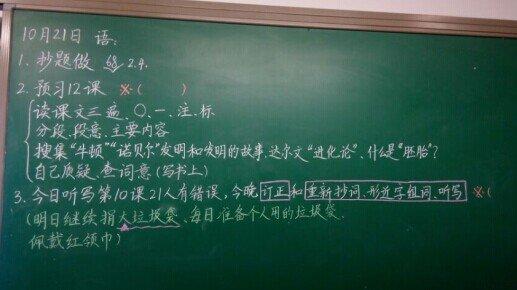 10月21日 语:
1. 抄题做 68 2.4.
2. 预习12课 ※( )
读课文三遍、○、一、注、标
分段、段意、主要内容
搜集“牛顿”“诺贝尔”发明和发明的故事.达尔文“进化论”、什么是“胚胎”?
自己质疑、查词意(写书上)
3. 今日听写第10课21人有错误,今晚订正和重新抄词、形近字组词、听写 ※(
(明日继续捐大垃圾袋、每日准备个人用的垃圾袋.
佩戴红领巾)